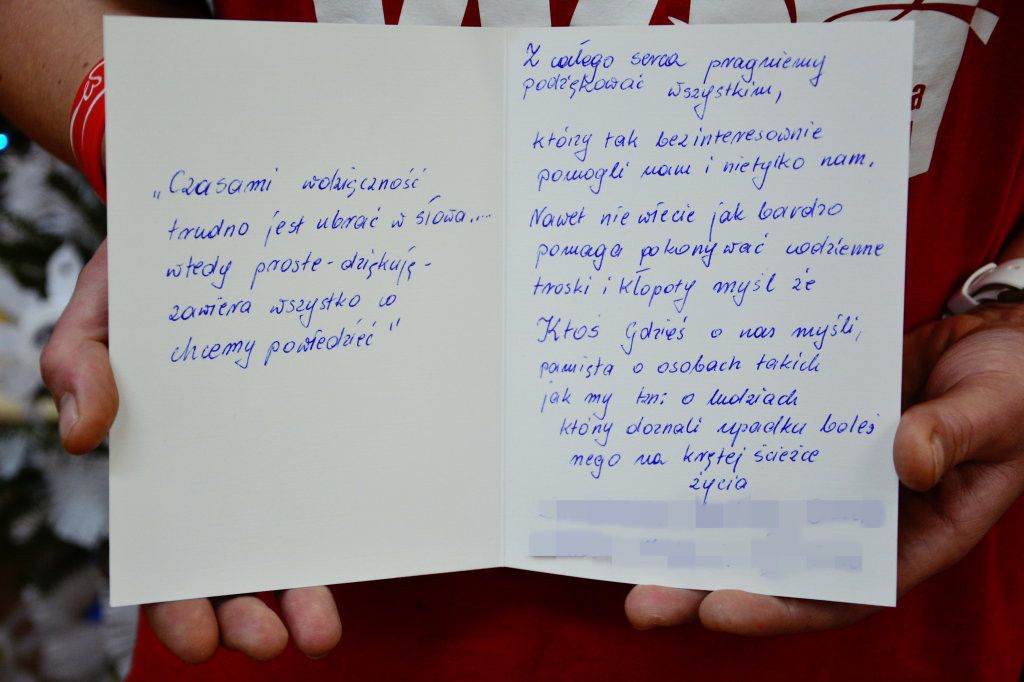 „Czasami wdzięczność
trudno jest ubrać w słowa....
wtedy proste - dziękuję -
zawiera wszystko co
chcemy powiedzieć"
Z całego serca pragniemy
podziękować wszystkim,
który tak bezinteresownie
pomogli nam i nietylko nam.
Nawet nie wiecie jak bardzo
pomaga pokonywać codzienne
troski i kłopoty myśl że
Ktoś Gdzięś o nas myśli,
pamięta o osobach takich
jak my tzn: o ludziach
który doznali upadku boleś
nego na krętej ścieżce
życia